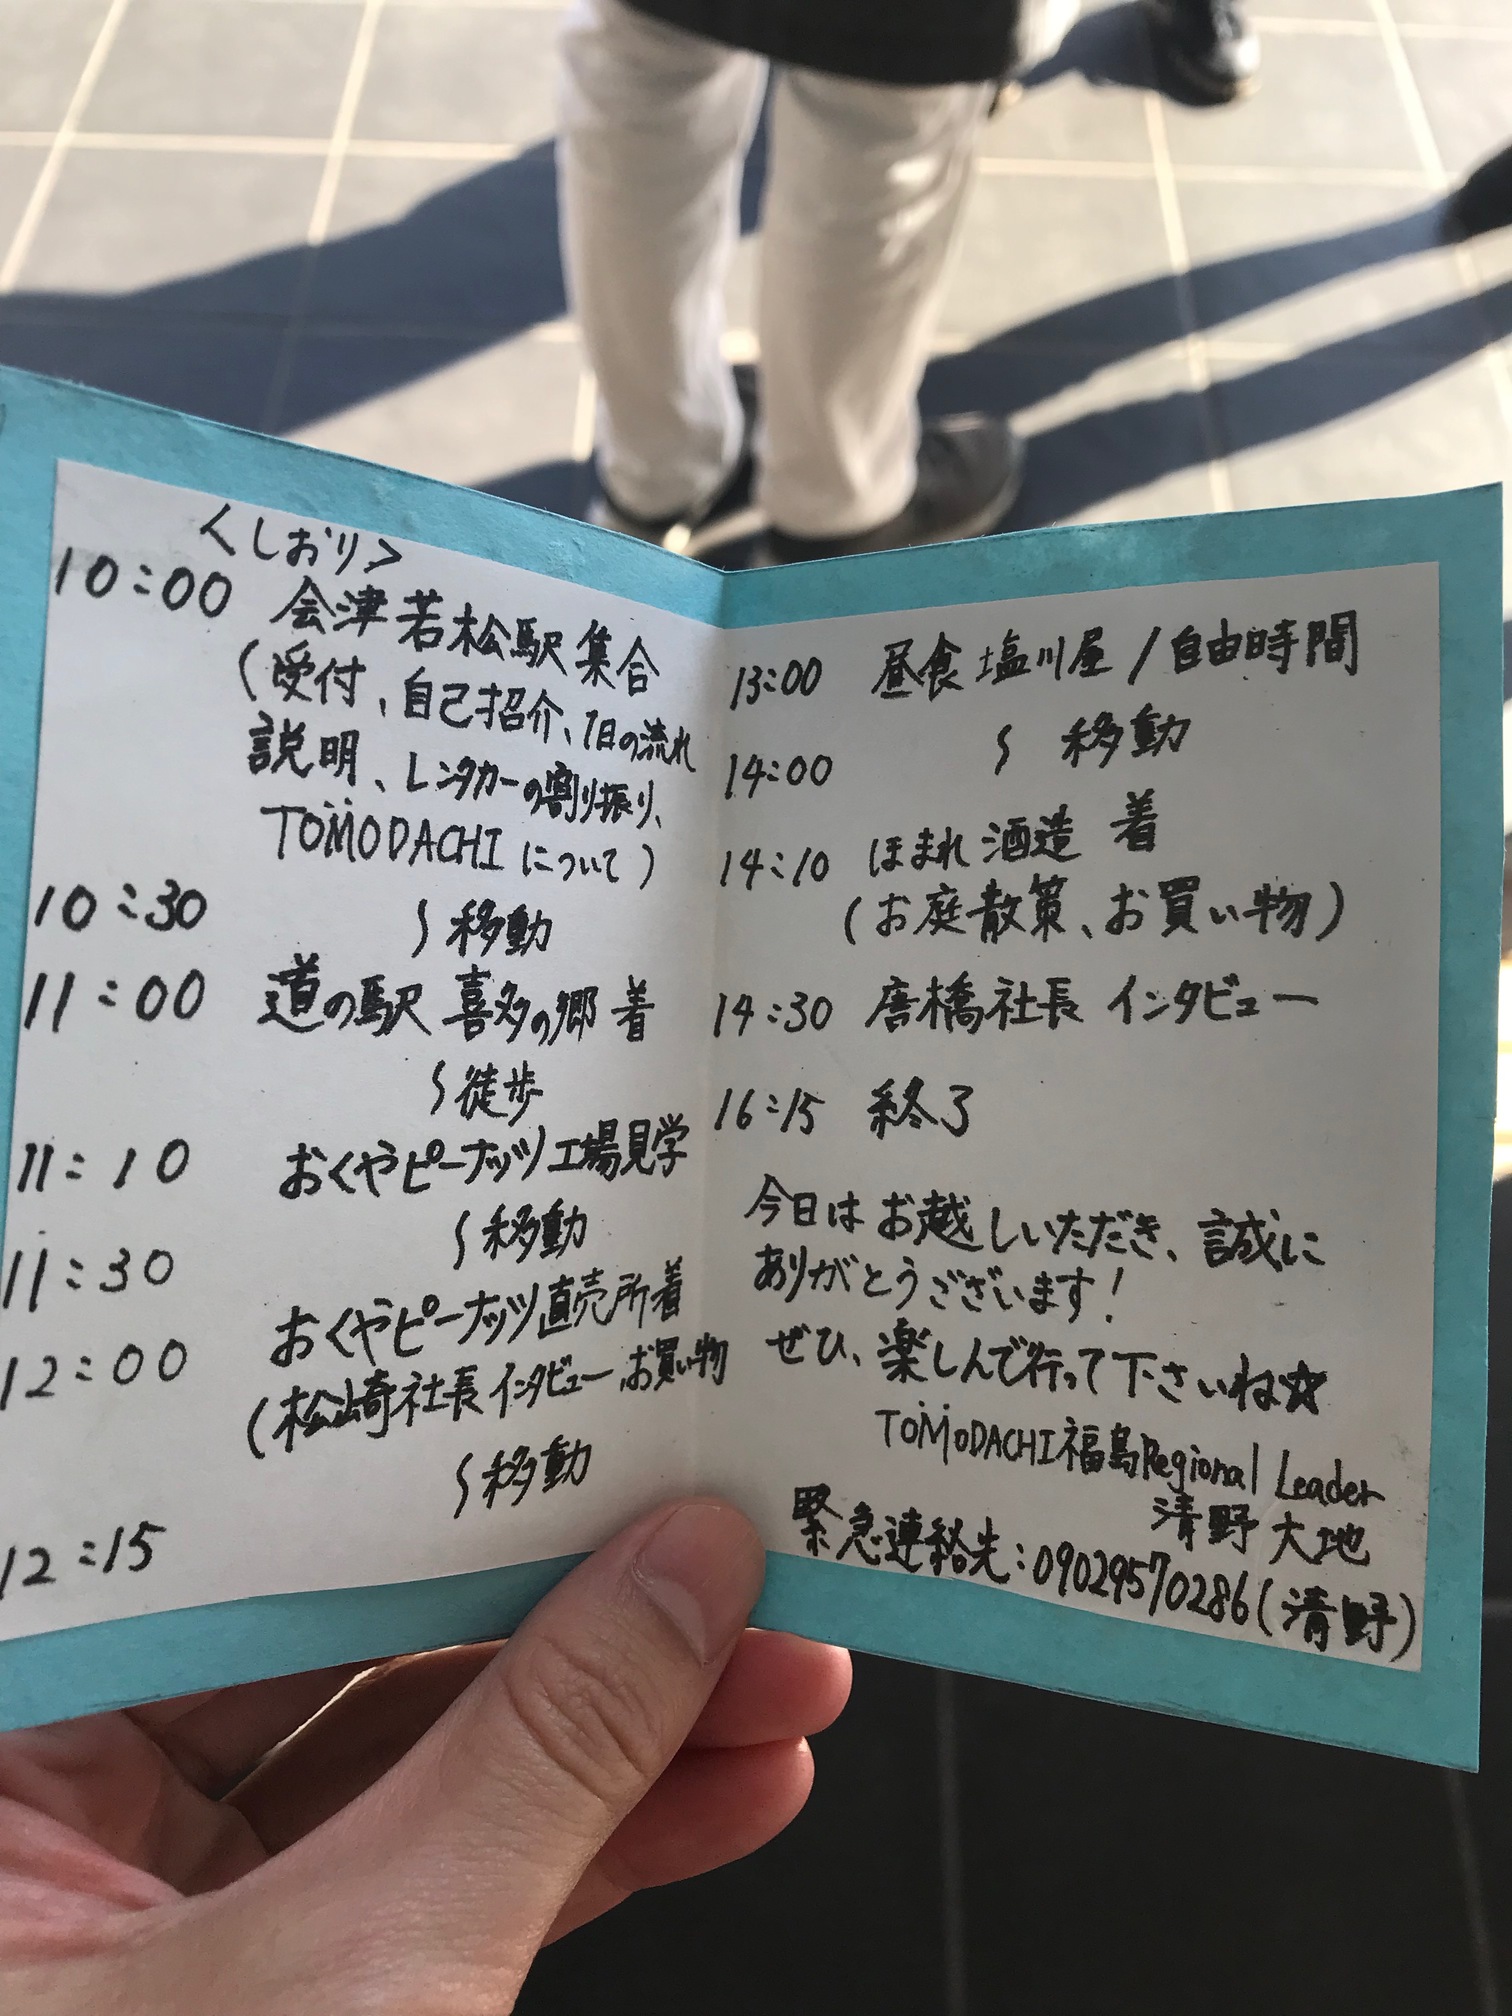 <しおり>
10:00 会津若松駅集合
(受付、自己紹介、1日の流れ
説明、レンタカーの割り振り、
TOMODACHIについて)
10:30 〜移動
11:00 道の駅 喜多の郷 着
〜徒歩
11:10 おくやピーナッツ工場見学
〜移動
11:30
おくやピーナッツ直売所着
12:00
(松崎社長インタビュー、お買い物
〜移動
12:15
13:00 昼食 塩川屋/自由時間
14:00 〜 移動
14:10 ほまれ酒造 着
(お庭散策、お買い物)
14:30 唐橋社長 インタビュー
16:15 終了
今日はお越しいただき、誠に
ありがとうございます!
ぜひ、楽しんで行って下さいね☆
TOMODACHI福島Regional Leader
清野 大地
緊急連絡先:09029570286(清野)